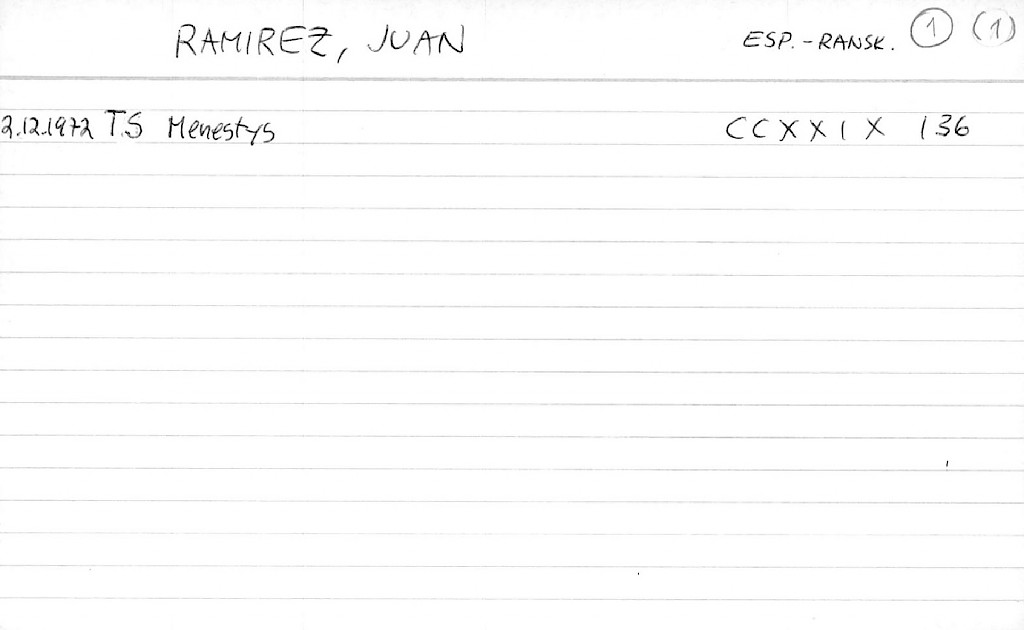 RAMIREZ, JUAN ESP.-RANSK. 1 (1)
2.12.1972 TS Menestys CCXXIX 136